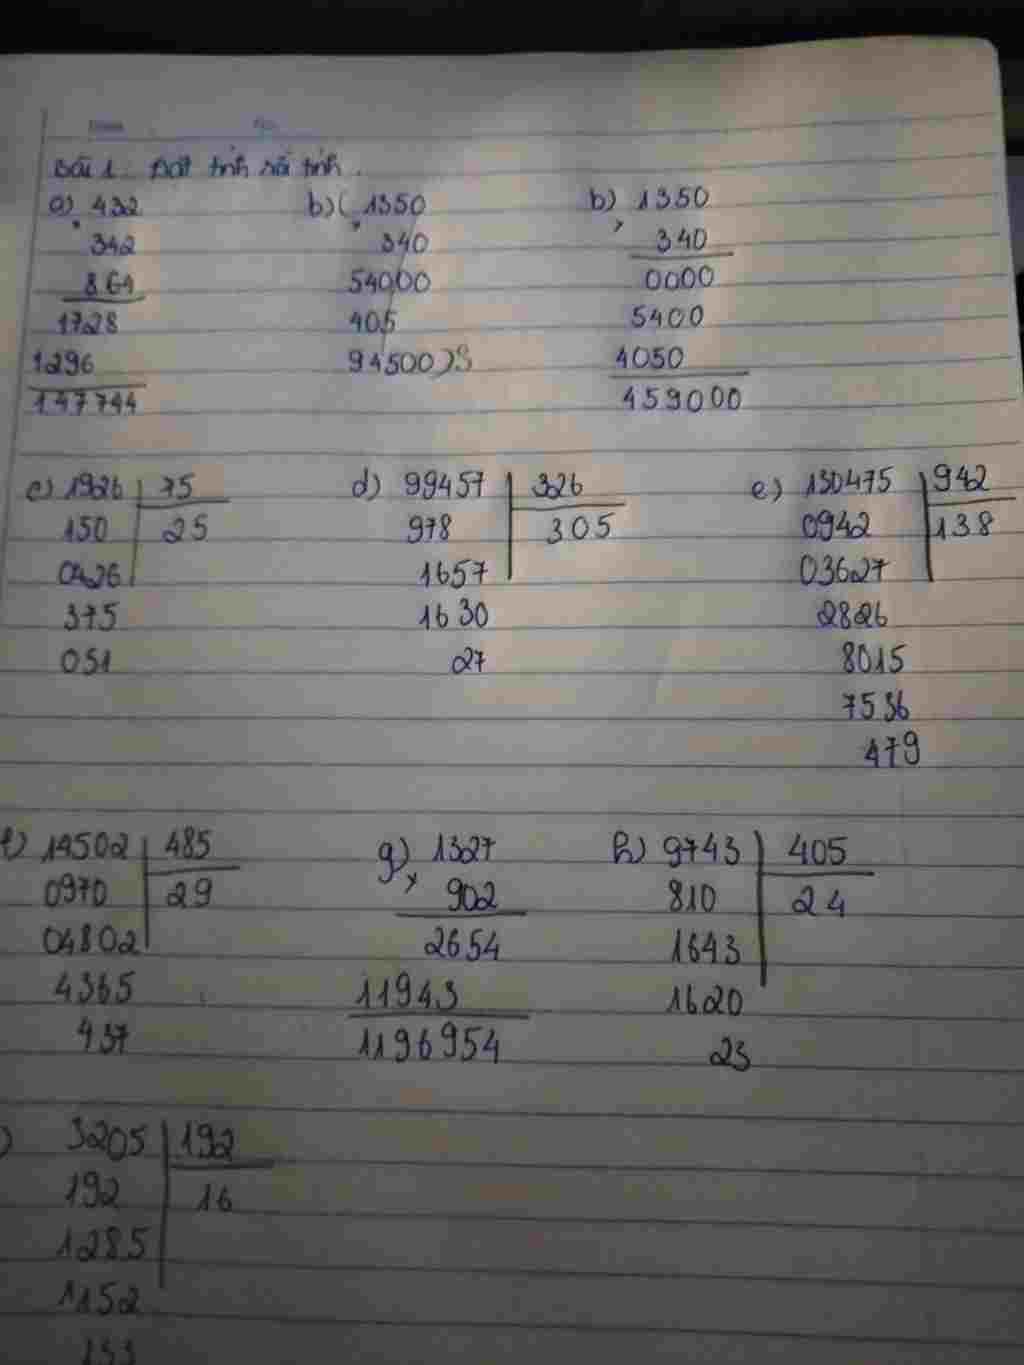 Bài 1: Đặt tính rồi tính.
a) 432 b) ( 1350 b) 1350
× 342 × 340 × 340
864 54000 0000
1728 405 5400
1296 94500 ) S 4050
147744 459000
c) 1926 75 d) 99457 326 e) 130475 942
150 25 978 305 0942 138
0426 1657 03627
375 1630 2826
051 27 8015
7536
479
f) 14502 485 g) 1327 h) 9743 405
0970 29 × 902 810 24
04802 2654 1643
4365 11943 1620
437 1196954 23
) 3205 192
192 16
1285
1152
133